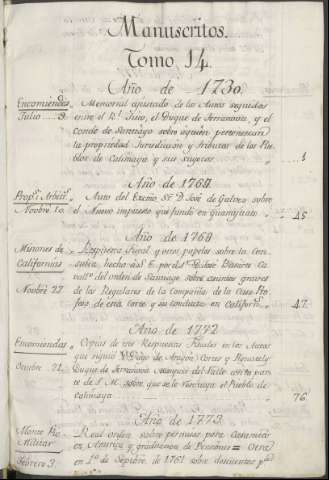 Manuscritos.
Tomo 14.
Año de 1730.
Encomiendas Memorial ajustado de los Autos seguidos
Julio 9. entre el Rl. Fisco, el Duque de Terranova, y el
Conde de Santiago sobre siguen pertenencia
la propiedad Jurisdiccion y tributos de los Pue
blos de Calimaya y sus sujetos. 1
Año de 1764
Auto del Exmo. Sr. D. José de Galvez sobre
Novbre. 10. el Nuevo impuesto que fundó en Guanajuato 45.
Año de 1768
Misiones de Respuesta Fiscal y otros papeles sobre la Con
Californias sulta hecha a S. E. por el Sr. D. José Basarte Ca
vallo. del orden de Santiago sobre asuntos graves
Novbre. 27. de los Regulares de la Compañia de la Casa Profe
sa de esta Corte y su conducta en Californs. 47.
Año de 1772
Encomiendas Copias de tres Respuestas Fiscales en los Autos
que siguió D. Diego de Aragon Cortes y
Octubre 21. Duque de Terranova Marques del Valle con la par
te de S. M. sobre que se le restituya el Pueblo de
Calimaya 76.
Año de 1773
Monte Pio Real orden sobre permisos para Casamien
Militar
Febrero 3. en 1o. de Septbre. de 1761 sobre descuentos pa